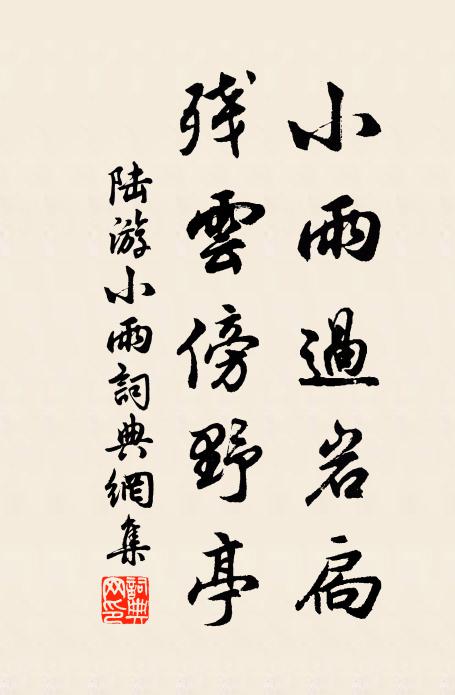 小雨過岩扃
殘雲傍野亭
陆游小雨詞典網集
詞典网印